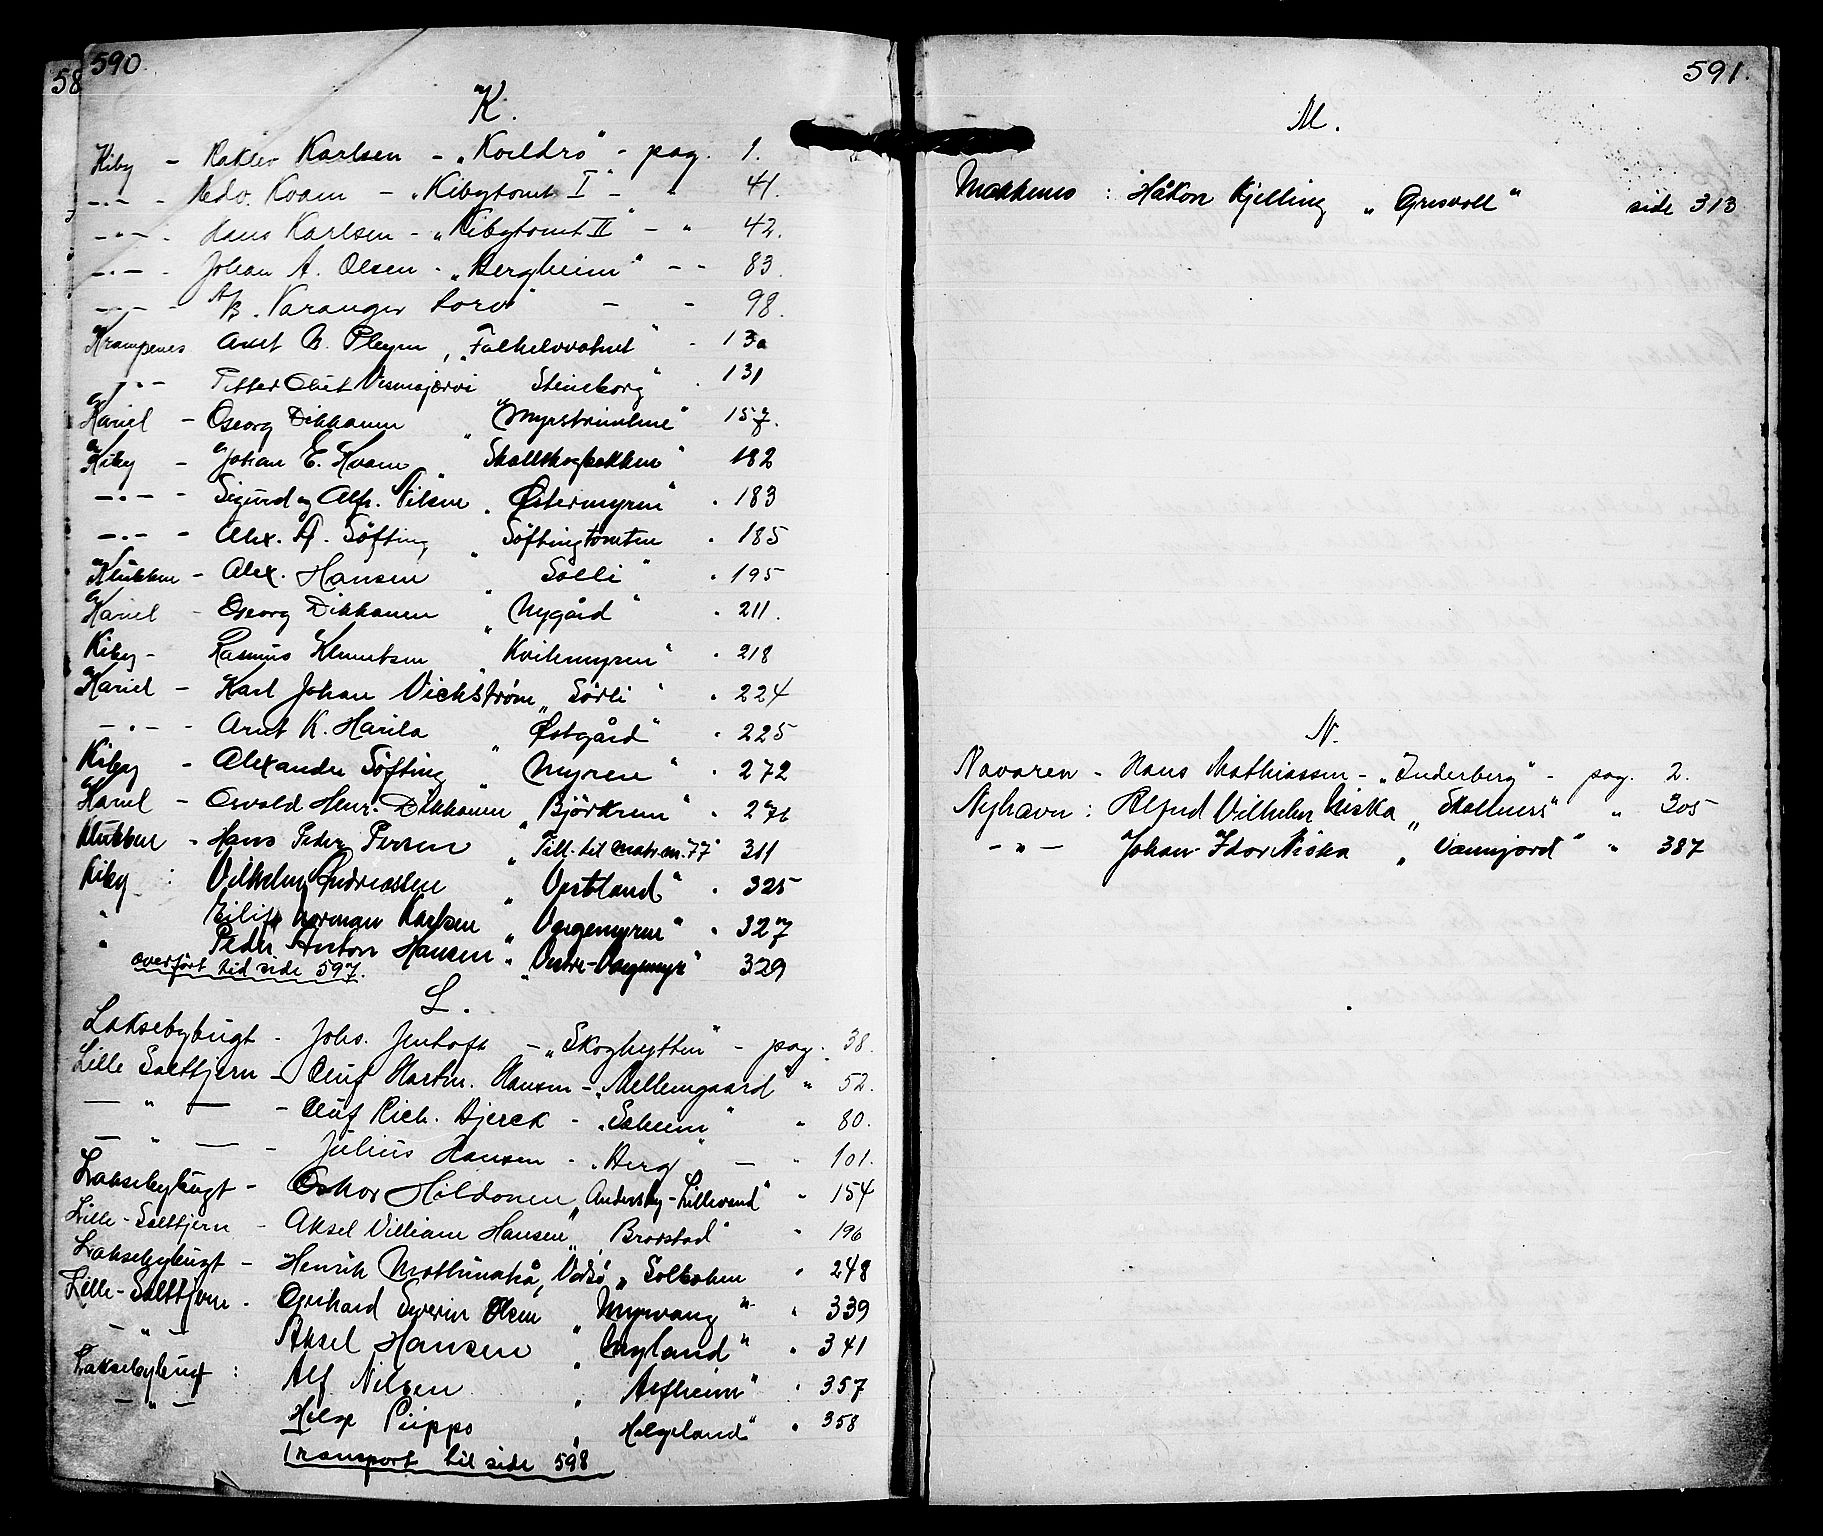 590
58
K.
Kiby - Rakler Karlsen - „Koildro" - pag. 1.
-"- - Edv. Kvam - „Kibytomt I" - " 41.
-"- - Hans Karlsen - „Kibytomt II" - " 42.
-"- - Johan A. Olsen - „Bergheim" - - 83.
-"- - A/B. Varanger - - 98.
Krampenes Axel N. „Falkelvvatnet" - 130
-"- Petter Olut Vesmajærvi Steinborg" . 131
Kariel - Georg Dikkanen " Myrstrimlene" 157.
Kiby - Johan E. Kvam " Skallskogbakken" 182
-"- - Sigurd og Alfr. Nilsen „ Østermyren" " 183
-"- - Alex. A. Søfting " Søftingtomten " 185
Klubben - Alex. Hansen " Solli" " 195
Kariel - Georg Dikkanen " Nygård" " 211.
Kiby - Rasmus Klemetsen „ Kvilemyren" " 218
Kariel - Karl Johan Vickstrøm „ Sørli " " 224
-"- - Arnt K. Harila " Østgård" " 225
Kiby - Alexander Søfting " Myren " " 272
Kariel - Osvald Henr. Dikkanen „ Björkmen" " 276
Klubben - Hans Peder Persen „ Till. til matr. nr. 77" 311
Kiby : Vilhelm Andreassen „ Vestland" " 325
" Eilif Norman Karlsen „ Vargemyren" " 327
" Peder Anton Hansen „ Vestre-Vargemyr" 329
overført til side 597.
L.
Laksebybugt - Johs. Jentoft - „Skoghytten" - pag. 38.
Lille Salttjern - Oluf Martin. Hansen - „Mellemgaard" " 52.
— " — - Oluf Rich. Bjerck - „Solheim" " 80.
— " — - Julius Hansen - „Berg" — " 101.
Laksebybugt - Oskar Holdonen „ Andersby-Lillevand" " 154
Lille-Salttjern - Aksel Villiam Hansen „ Brovstad" " 196
Laksebybugt - Henrik Mathinaho, Vadsø „ Solbaken " 248
Lille-Salttjern - Gerhard Severin Olsen „ Myrvang " " 339
- " - Aksel Hansen „ Nyland" " 341
Laksebybugt : Alf Nilsen „ Alfheim" " 357
- " - Helge Piippo „ Helgeland" " 358
Transport til side 598
591.
M.
Makkenes : Håkon Kjelling „ Grusvoll" side 313
N.
Navaren - Hans Mathiassen - „Inderberg" - pag. 2.
Nyhavn : Alfred Vilhelm Niska „ Skallnes" " 305
- " - Johan Idor Niska „ Vannjord" " 387